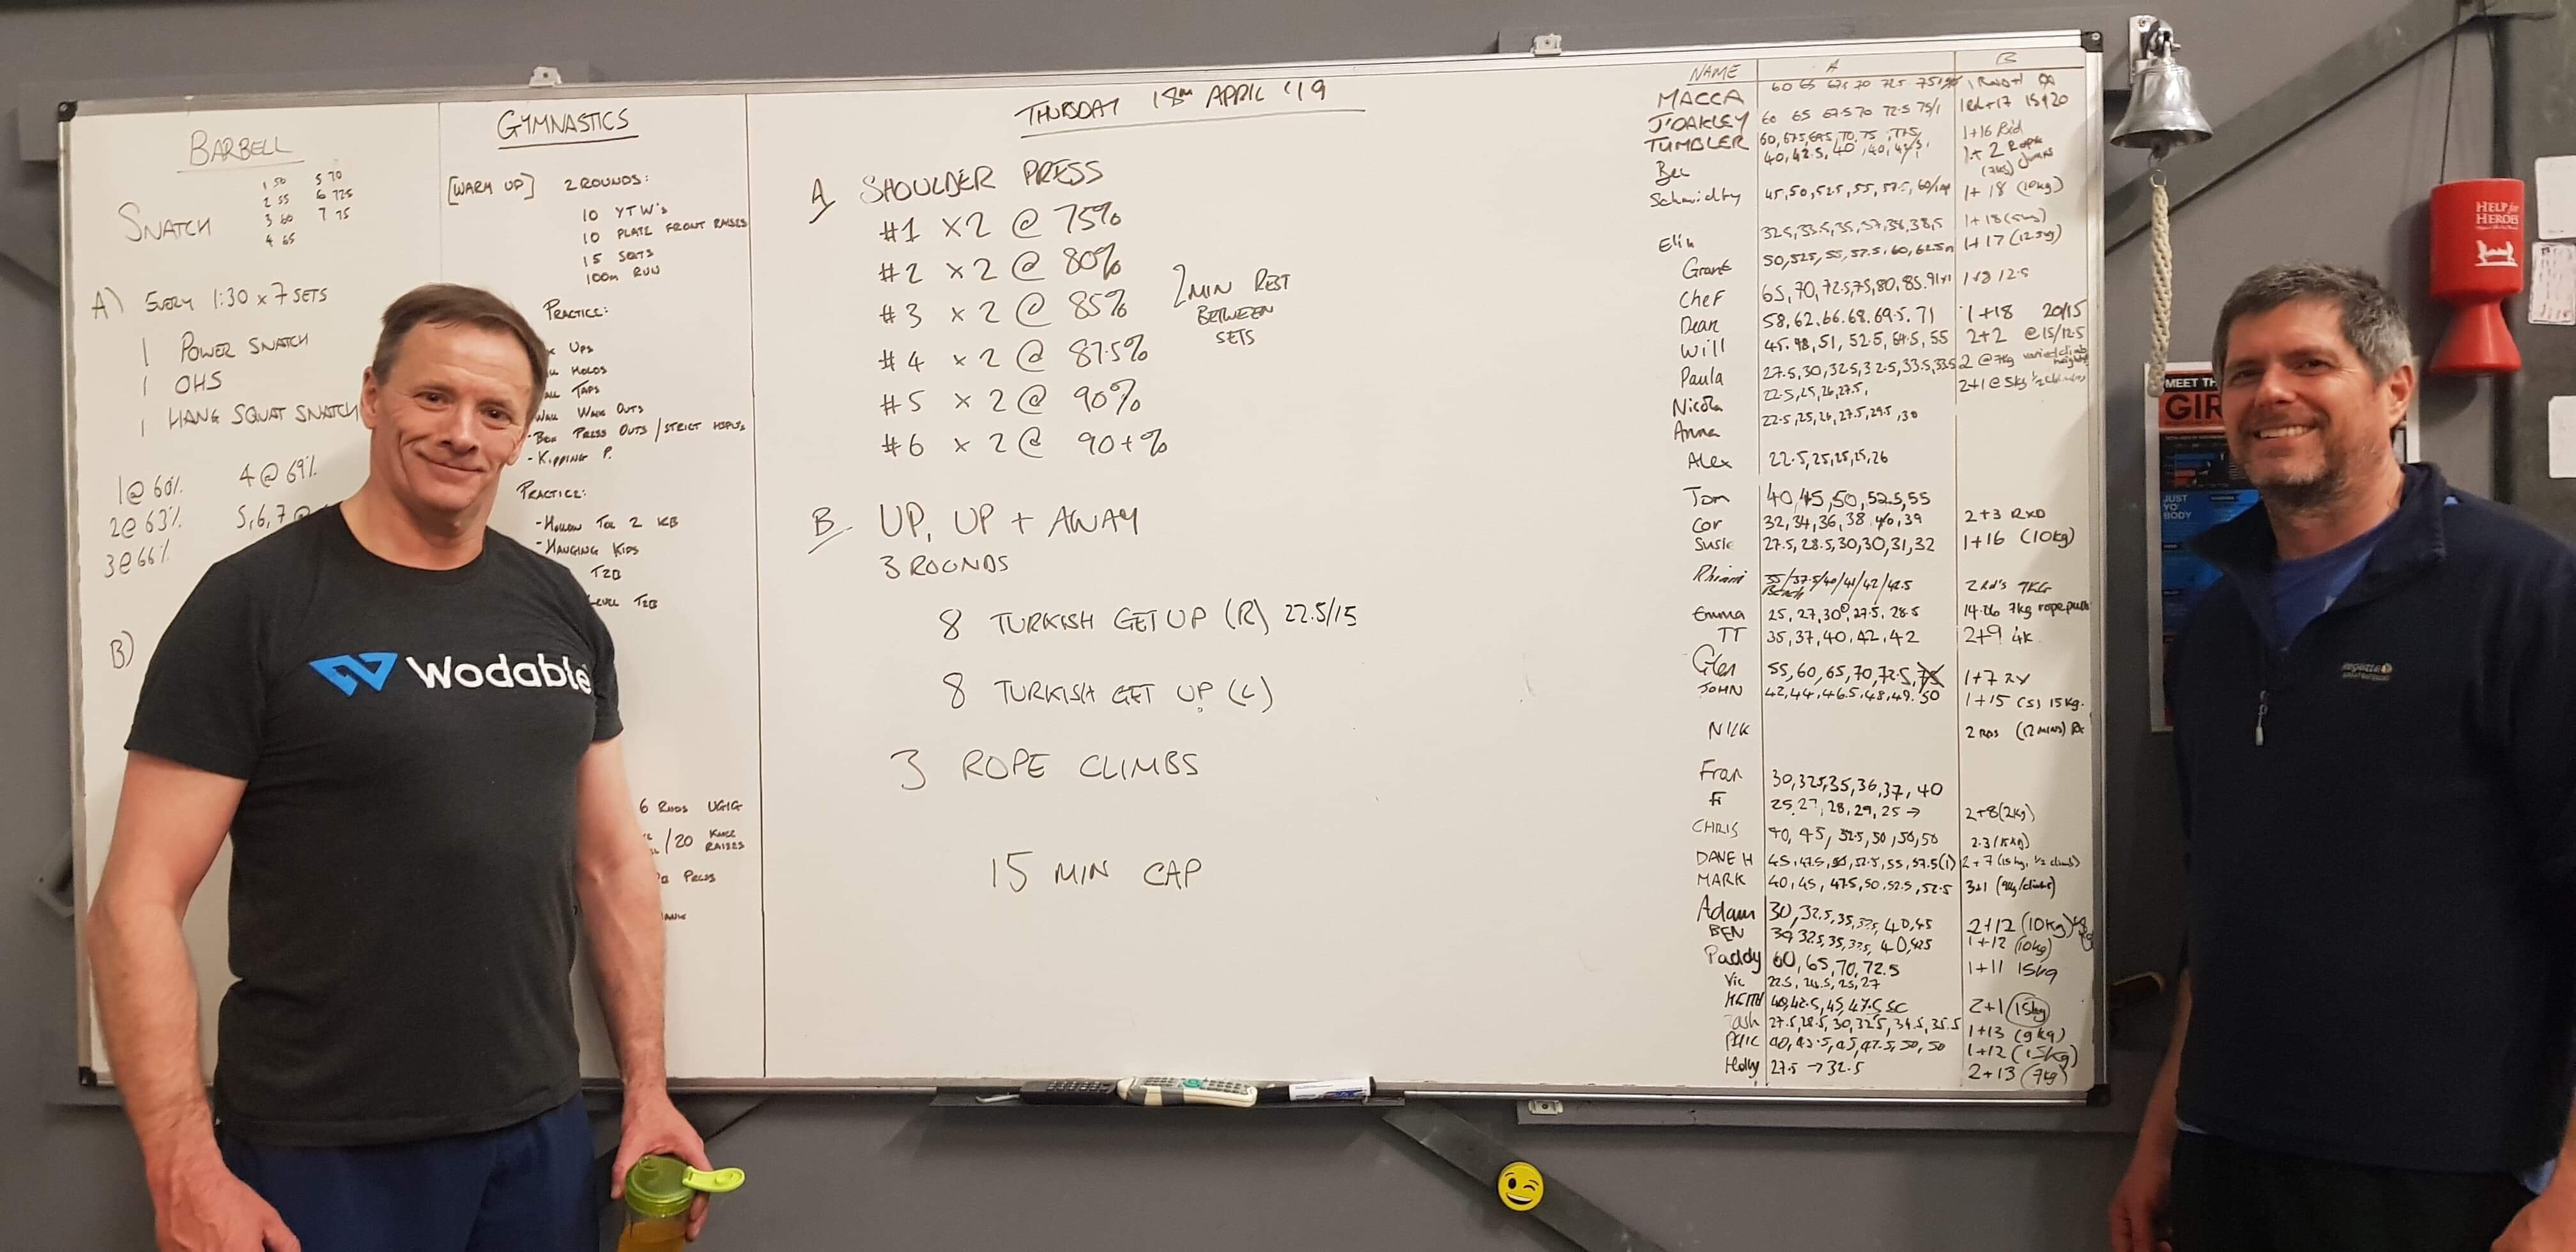 BARBELL
SNATCH
1 50
2 55
3 60
4 65
5 70
6 72.5
7 75
A) EVERY 1:30 x 7 SETS
1 POWER SNATCH
1 OHS
1 HANG SQUAT SNATCH
1 @ 60%
2 @ 63%
3 @ 66%
4 @ 69%
5,6,7 @
B)
GYMNASTICS
[WARM UP] 2 ROUNDS:
10 YTW's
10 PLATE FRONT RAISES
15 SQTS
100m RUN
PRACTICE:
UPS
HOLDS
TAPS
WALL WALK OUTS
- BOX PRESS OUTS / STRICT HSPU's
- KIPPING P.
PRACTICE:
- HOLLOW TO 2 KB
- HANGING KIPS
T2B
LEVEL T2B
6 RNDS UGIG
/20 KNEE RAISES
PRESS
THURSDAY 18TH APRIL '19
A SHOULDER PRESS
#1 x2 @ 75%
#2 x2 @ 80%
#3 x2 @ 85%
#4 x2 @ 87.5%
#5 x2 @ 90%
#6 x2 @ 90+%
2 MIN REST
BETWEEN
SETS
B UP, UP + AWAY
3 ROUNDS
8 TURKISH GET UP (R) 22.5/15
8 TURKISH GET UP (L)
3 ROPE CLIMBS
15 MIN CAP
NAME A B
MACCA 60 65 67.5 70 72.5
J'OAKLEY 60 65 67.5 70 72.5 75/1 1Rd+17 15/20
TUMBLER 1+16
Bec 40, 42.5, 40, 40 1+2 Rope Jumps (7kg)
Schmidty 45, 50, 52.5, 55, 57.5 1+18 (10kg)
Elin 32.5, 33.5, 35, 37, 38, 38.5 1+18 (5kg)
Grant 50, 52.5, 55, 57.5, 60 1+17 (12.5kg)
Chef 65, 70, 72.5, 75, 80, 85 12.5
Dean 58, 62, 66, 68, 69.5, 71 1+18 20/15
Will 45, 48, 51, 52.5, 54.5, 55 2+2 @ 15/12.5
Paula 27.5, 30, 32.5, 32.5, 33.5, 33.5 2 @ 7kg varied climb heights
Nicola 22.5, 25, 26, 27.5, 2+1 @ 5kg 1/2 climbs
Anna 22.5, 25, 26, 27.5, 29.5, 30
Alex 22.5, 25, 25, 25, 26
Tom 40, 45, 50, 52.5, 55
Cor 32, 34, 36, 38, 40, 39 2+3 RXD
Susie 27.5, 28.5, 30, 30, 31, 32 1+16 (10kg)
Rhianni 35/37.5/40/41/42/42.5 2 Rd's 7KG
Bench
Emma 25, 27, 30, 27.5, 28.5 14.06 7kg rope pulls
TT 35, 37, 40, 42, 42 2+9 4k
Glen 55, 60, 65, 70, 72.5, 75 1+7 RX
JOHN 42, 44, 46.5, 48, 49, 50 1+15 (S) 15kg.
NICK 2 RDS (12 MINS) Rx
Fran 30, 32.5, 35, 36, 37, 40
Fi 25, 27, 28, 29, 25 → 2+8 (2kg)
CHRIS 40, 45, 52.5, 50, 50, 50 2.3 (15kg)
DANE H 45, 47.5, 50, 52.5, 55, 57.5(1) 2+7 (15kg, 1/2 climb)
MARK 40, 45, 47.5, 50, 52.5, 52.5 3+1 (9kg/climbs)
Adam 30, 32.5, 35, 37.5, 40, 45 2+12 (10kg)
BEN 30, 32.5, 35, 37.5, 40, 42.5 1+12 (10kg)
Paddy 60, 65, 70, 72.5 1+11 15kg
Vic 22.5, 24.5, 25, 27
KEITH 40, 42.5, 45, 47.5, 50 2+1 (15kg)
Tash 27.5, 28.5, 30, 32.5, 34.5, 35.5 1+13 (9kg)
40, 42.5, 45, 47.5, 50, 50 1+12 (15kg)
Holly 27.5 → 32.5 2+13 (7kg)
Wodable
HELP for HEROES
MEET TH
GIR
JUST
YO
BODY
regatta